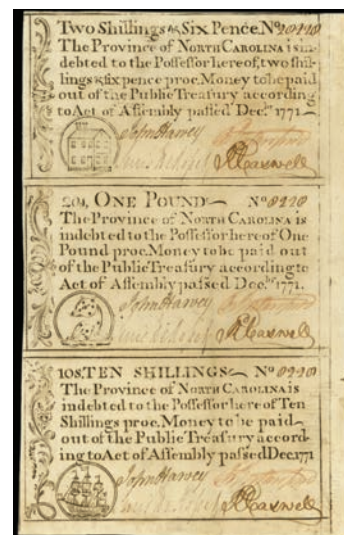 Two Shillings & Six Pence. No
The Province of NORTH CAROLINA is in-
debted to the Poſſeſſor here of, two ſhil-
lings & ſix pence proc. Money to be paid
out of the Public Treaſury according
to Act of Aſſembly paſſed Dec.br 1771.
John Harvey
RCaswell
20s, ONE POUND No 8220
The Province of NORTH CAROLINA is
indebted to the Poſſeſſor here of One
Pound proc. Money to be paid out
of the Public Treaſury according to
Act of Aſſembly paſsed Dec.br 1771.
John Harvey
RCaswell
10s, TEN SHILLINGS No 8220
The Province of NORTH CAROLINA is
indebted to the Poſſeſſor here of Ten
Shillings proc. Money to be paid
out of the Public Treaſury accord-
ing to Act of Aſſembly paſſed Dec. 1771
John Harvey
RCaswell